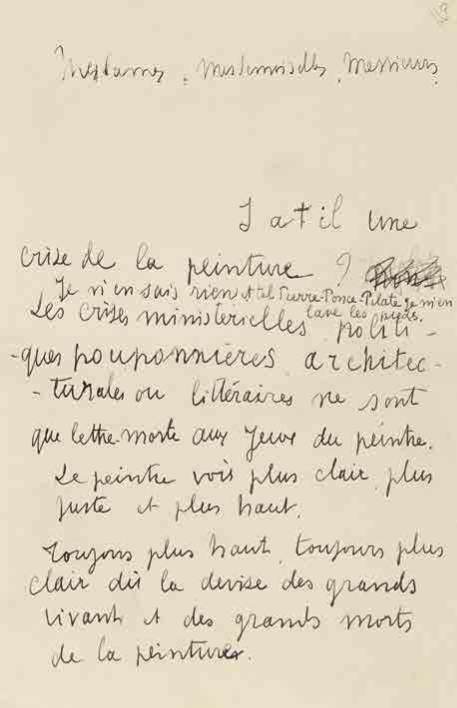 Mesdames, Mesdemoiselles, Messieurs.
Y a t il une
crise de la peinture ?
Je n'en sais rien et tel Pierre-Ponce-Pilate je m'en
lave les pieds.
Les crises ministerielles politi-
-ques pouponnières architec-
-turales ou littéraires ne sont
que lettre morte aux yeux du peintre.
Le peintre vois plus clair, plus
juste et plus haut.
Toujours plus haut, toujours plus
clair dit la devise des grands
vivants et des grands morts
de la peinture.